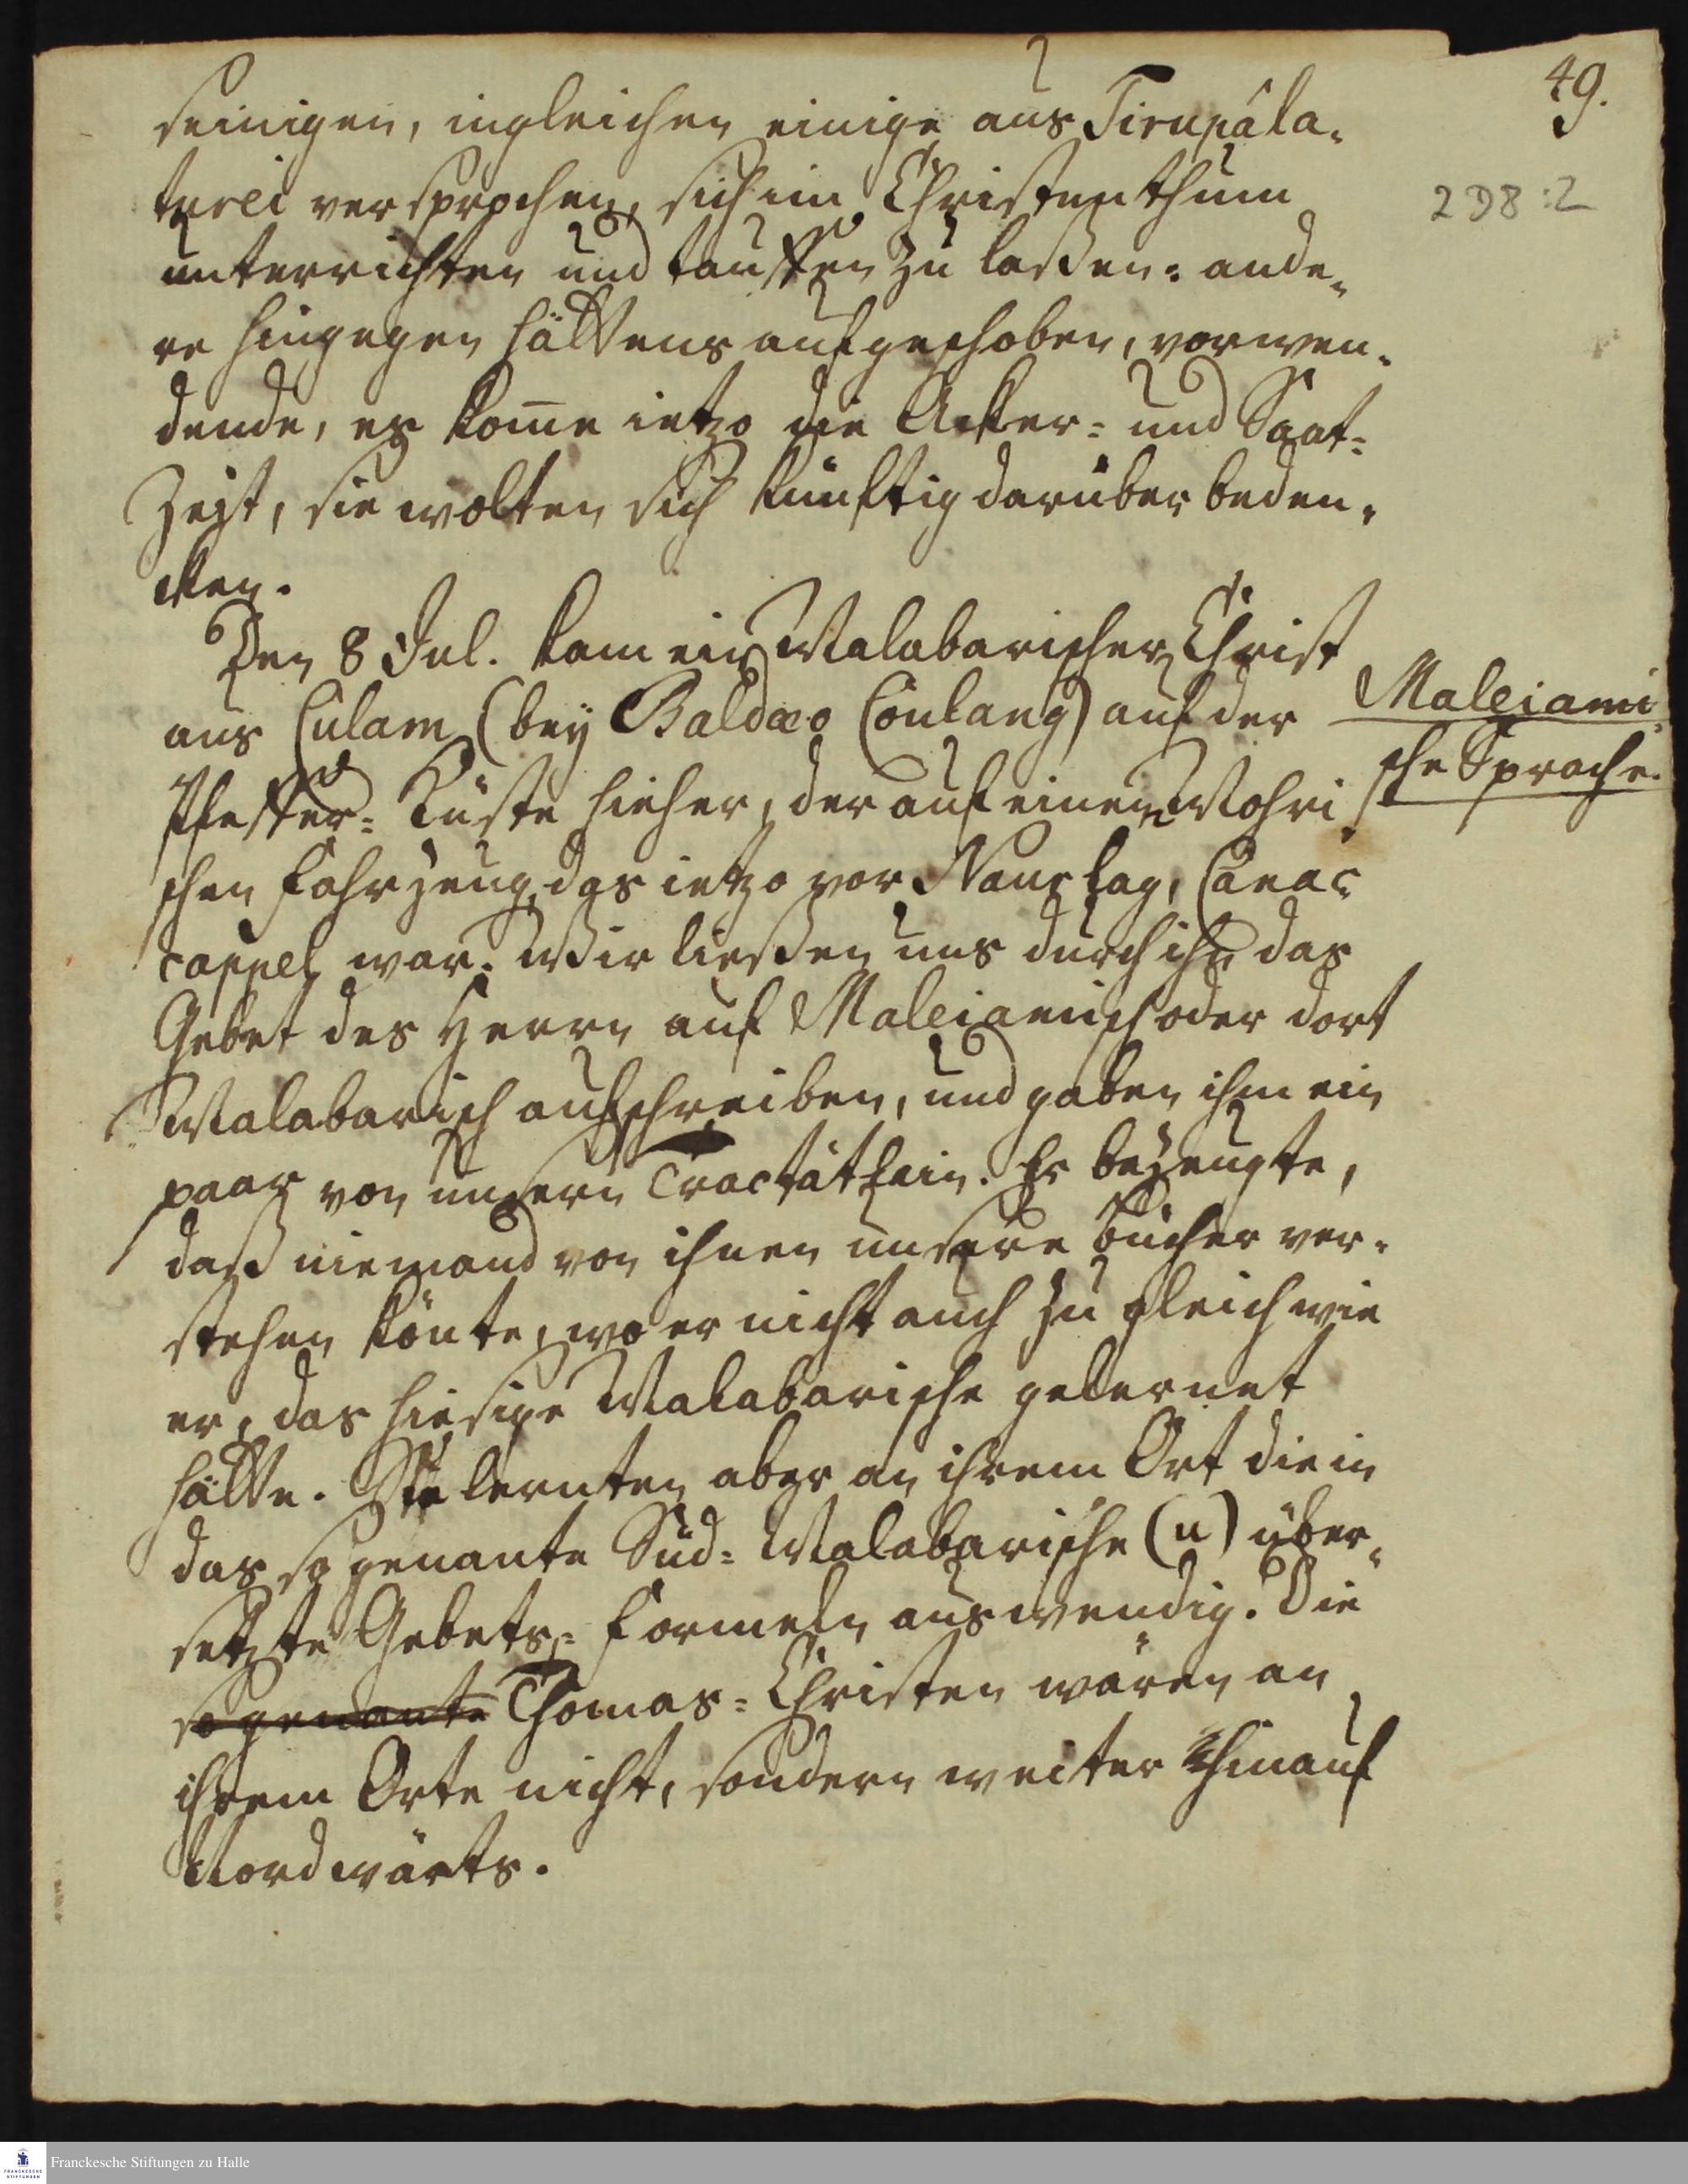 49.
2 D 8 : 2
seinigen, ingleichen einige aus Tirupâla-
turei versprochen, sich im Christenthum
unterrichten und tauffen zu laßen: ande-
re hingegen hättens aufgeschoben, vorwen-
dende, es kom̅e ietzo die Acker- und Saat-
Zeit, sie wolten sich künftig darüber beden-
cken.
Den 8 Jul. kam ein Malabarischer Christ
aus Culam (bey Baldæo Coulang) auf der
Pfeffer-Küste hieher, der auf einem Mohri-
schen Fahrzeug, das ietzo vor Naur lag, Canac-
cappel war. Wir ließen uns durch ihn das
Gebet des Herrn auf Maleiamisch oder dort
Malabarisch aufschreiben, und gaben ihm ein
paar von unsern Tractätlein. Er bezeugte,
daß niemand von ihnen unsere Bücher ver-
stehen könte, wo er nicht auch zu gleich wie
er, das hiesige Malabarische gelernet
hätte. Sie lernten aber an ihrem Ort die in
das so genante Süd-Malabarische (u) über-
setzte Gebets-Formeln auswendig. Die
so genante Thomas-Christen wären an
ihrem Orte nicht, sondern weiter hinauf
Nordwärts.
Maleiami-
sche Sprache.
Franckesche Stiftungen zu Halle
FRANCKESCHE
STIFTUNGEN